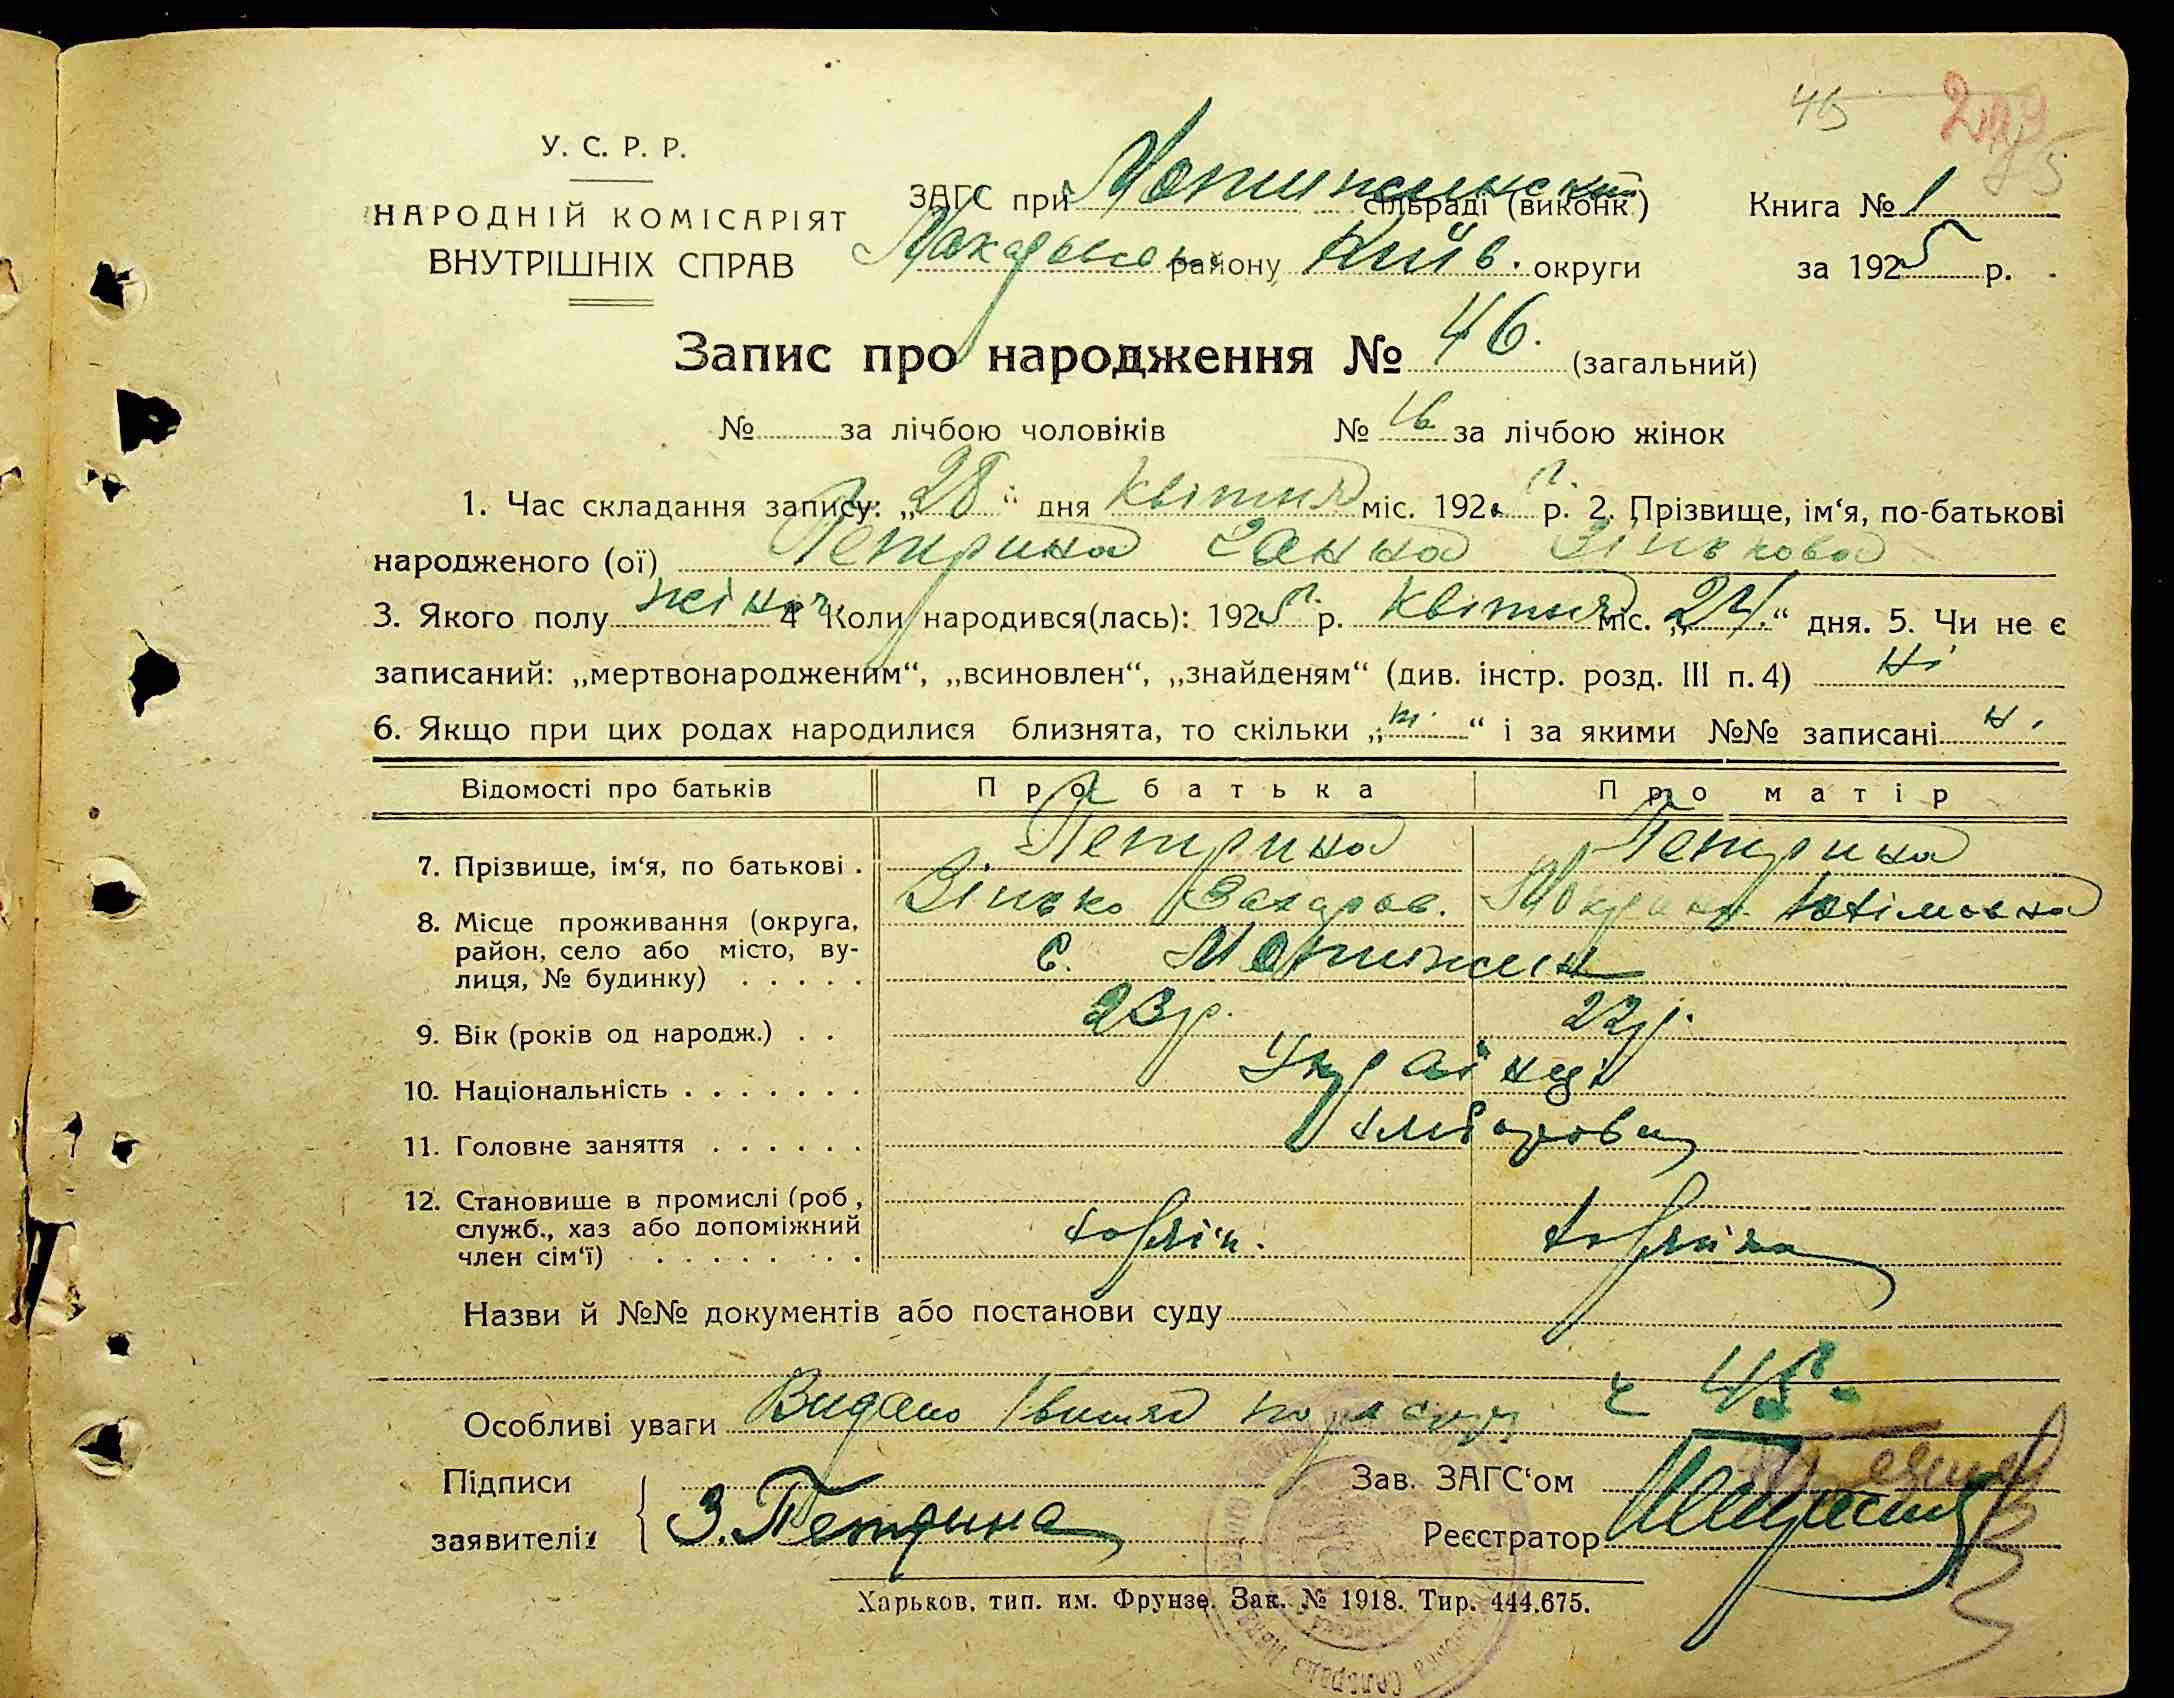 46
У. С. Р. Р.
НАРОДНІЙ КОМІСАРІЯТ
ВНУТРІШНІХ СПРАВ
ЗАГС при Мотижинській сільраді (виконк)
району Київ. округи
Книга № 1
за 1925 р.
Запис про народження № 46. (загальний)
№ за лічбою чоловіків № 16 за лічбою жінок
1. Час складання запису: „28“ дня Квітня міс. 192 р. 2. Прізвище, ім‘я, по-батькові
народженого (ої) Петрина Ганна Зінькова
3. Якого полу жіноч. 4 Коли народився(лась): 1925 р. Квітня міс. „24.“ дня. 5. Чи не є
записаний: „мертвонародженим“, „всиновлен“, „знайденям“ (див. інстр. розд. III п. 4) ні
6. Якщо при цих родах народилися близнята, то скільки „ “ і за якими №№ записані н.
Відомості про батьків Про батька Про матір
7. Прізвище, ім‘я, по батькові . Петрина Петрина
Зінько Захаров. Мокрина Юхімовна
8. Місце проживання (округа,
район, село або місто, ву-
лиця, № будинку) . . . . . с. Мотижин
9. Вік (років од народж.) . . 23р. 22р.
10. Національність . . . . . . . Українці
11. Головне заняття . . . . . . хліборобц
12. Становище в промислі (роб,
служб., хаз або допоміжний
член сім‘ї) . . . . . . . . хозяїн. хозяйка
Назви й №№ документів або постанови суду
Особливі уваги Видано
Підписи
заявителів З. Петрина
Зав. ЗАГС‘ом
Реєстратор
Харьков, тип. им. Фрунзе. Зак. № 1918. Тир. 444.675.